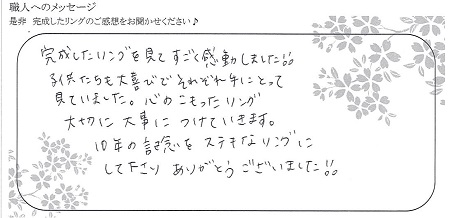 職人へのメッセージ
是非 完成したリングのご感想をお聞かせください♪
完成したリングを見てすごく感動しました!!
子供たちも大喜びでそれぞれ手にとって
見ていました。心のこもったリング
大切に大事につけていきます。
10年の記念をステキなリングに
して下さり ありがとうございました!!